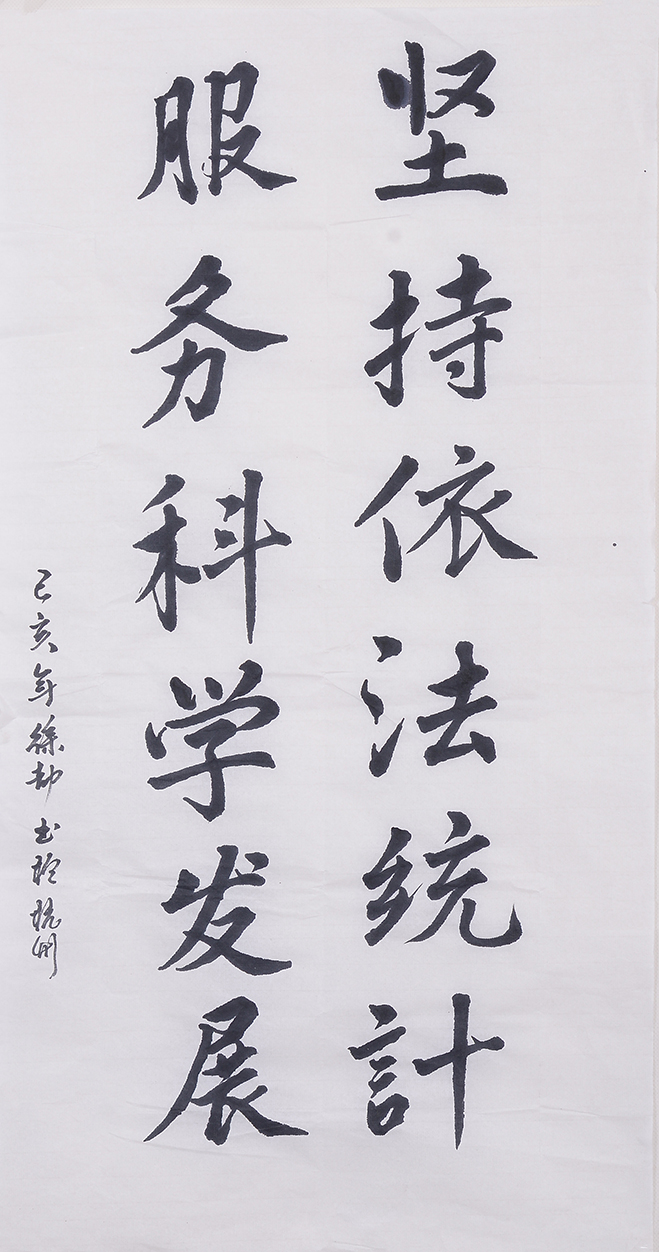 坚持依法统計
服务科学发展
己亥年徐劫书於杭州